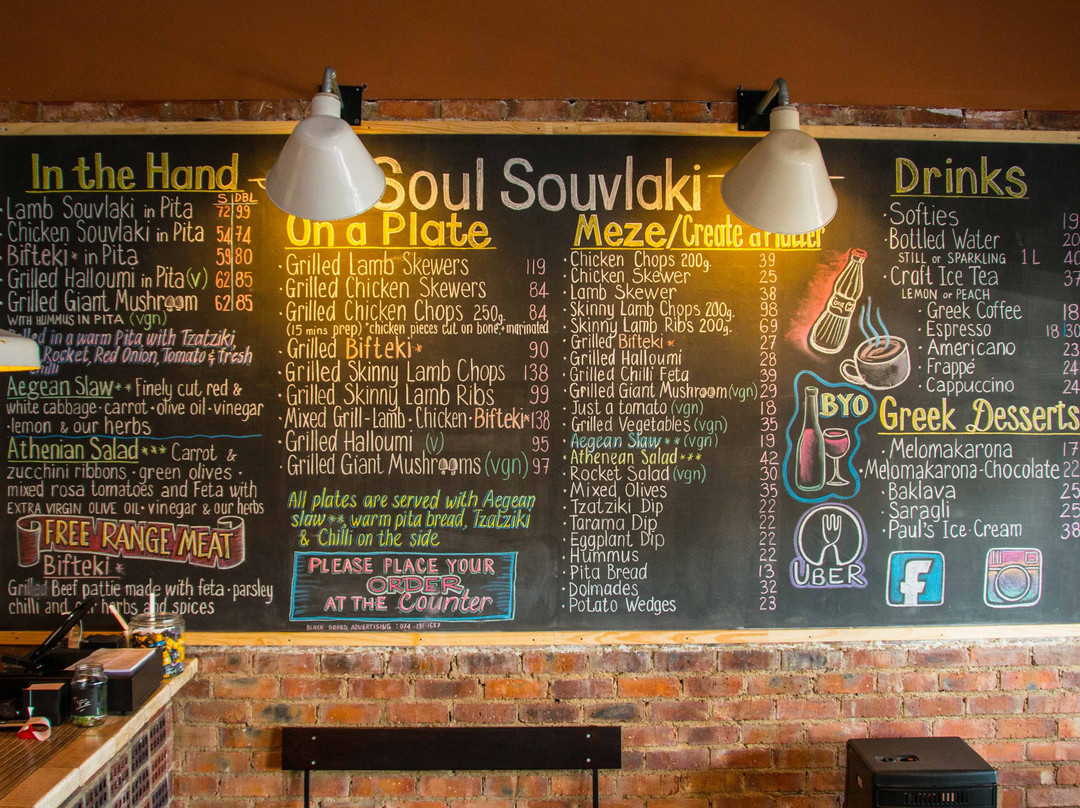 In the Hand
S DBL
Lamb Souvlaki in Pita 72 99
Chicken Souvlaki in Pita 54 74
Bifteki* in Pita 59 80
Grilled Halloumi in Pita (v) 62 85
Grilled Giant Mushroom 62 85
WITH HUMMUS IN PITA (vgn)
in a warm Pita with Tzatziki,
Rocket, Red Onion, Tomato & fresh
chilli
Aegean Slaw** Finely cut red &
white cabbage · carrot · olive oil · vinegar
· lemon & our herbs
Athenian Salad*** Carrot &
zucchini ribbons · green olives ·
mixed rosa tomatoes and Feta with
EXTRA VIRGIN OLIVE OIL · vinegar & our herbs
FREE RANGE MEAT
Bifteki*
Grilled Beef pattie made with feta · parsley
chilli and our herbs and spices
Soul Souvlaki
On a Plate
· Grilled Lamb Skewers 119
· Grilled Chicken Skewers 84
· Grilled Chicken Chops 250g. 84
(15 mins prep) *chicken pieces cut on bone & marinated
· Grilled Bifteki* 90
· Grilled Skinny Lamb Chops 138
· Grilled Skinny Lamb Ribs 99
· Mixed Grill - Lamb · Chicken · Bifteki* 138
· Grilled Halloumi (v) 95
· Grilled Giant Mushrooms (vgn) 97
All plates are served with Aegean
slaw**, warm pita bread, Tzatziki
& Chilli on the side
PLEASE PLACE YOUR
ORDER
AT THE Counter
BLACK BOARD ADVERTISING :
Meze/Create a Platter
· Chicken Chops 200g. 39
· Chicken Skewer 25
· Lamb Skewer 38
· Skinny Lamb Chops 200g. 98
· Skinny Lamb Ribs 200g. 69
· Grilled Bifteki* 27
· Grilled Halloumi 28
· Grilled Chilli Feta 39
· Grilled Giant Mushroom (vgn) 29
· Just a tomato (vgn) 18
· Grilled Vegetables (vgn) 35
· Aegean Slaw** (vgn) 19
· Athenean Salad*** 42
· Rocket Salad (vgn) 30
· Mixed Olives 35
· Tzatziki Dip 22
· Tarama Dip 22
· Eggplant Dip 22
· Hummus 22
· Pita Bread 13
· Dolmades 32
· Potato Wedges 23
BYO
UBER
Drinks
· Softies 19
· Bottled Water 20
STILL or SPARKLING 1L 40
· Craft Ice Tea 37
LEMON or PEACH
· Greek Coffee 18
· Espresso 18 30
· Americano 23
· Frappé 24
· Cappuccino 24
Greek Desserts
· Melomakarona 17
· Melomakarona-Chocolate 22
· Baklava 25
· Saragli 25
· Paul's Ice-Cream 38
f